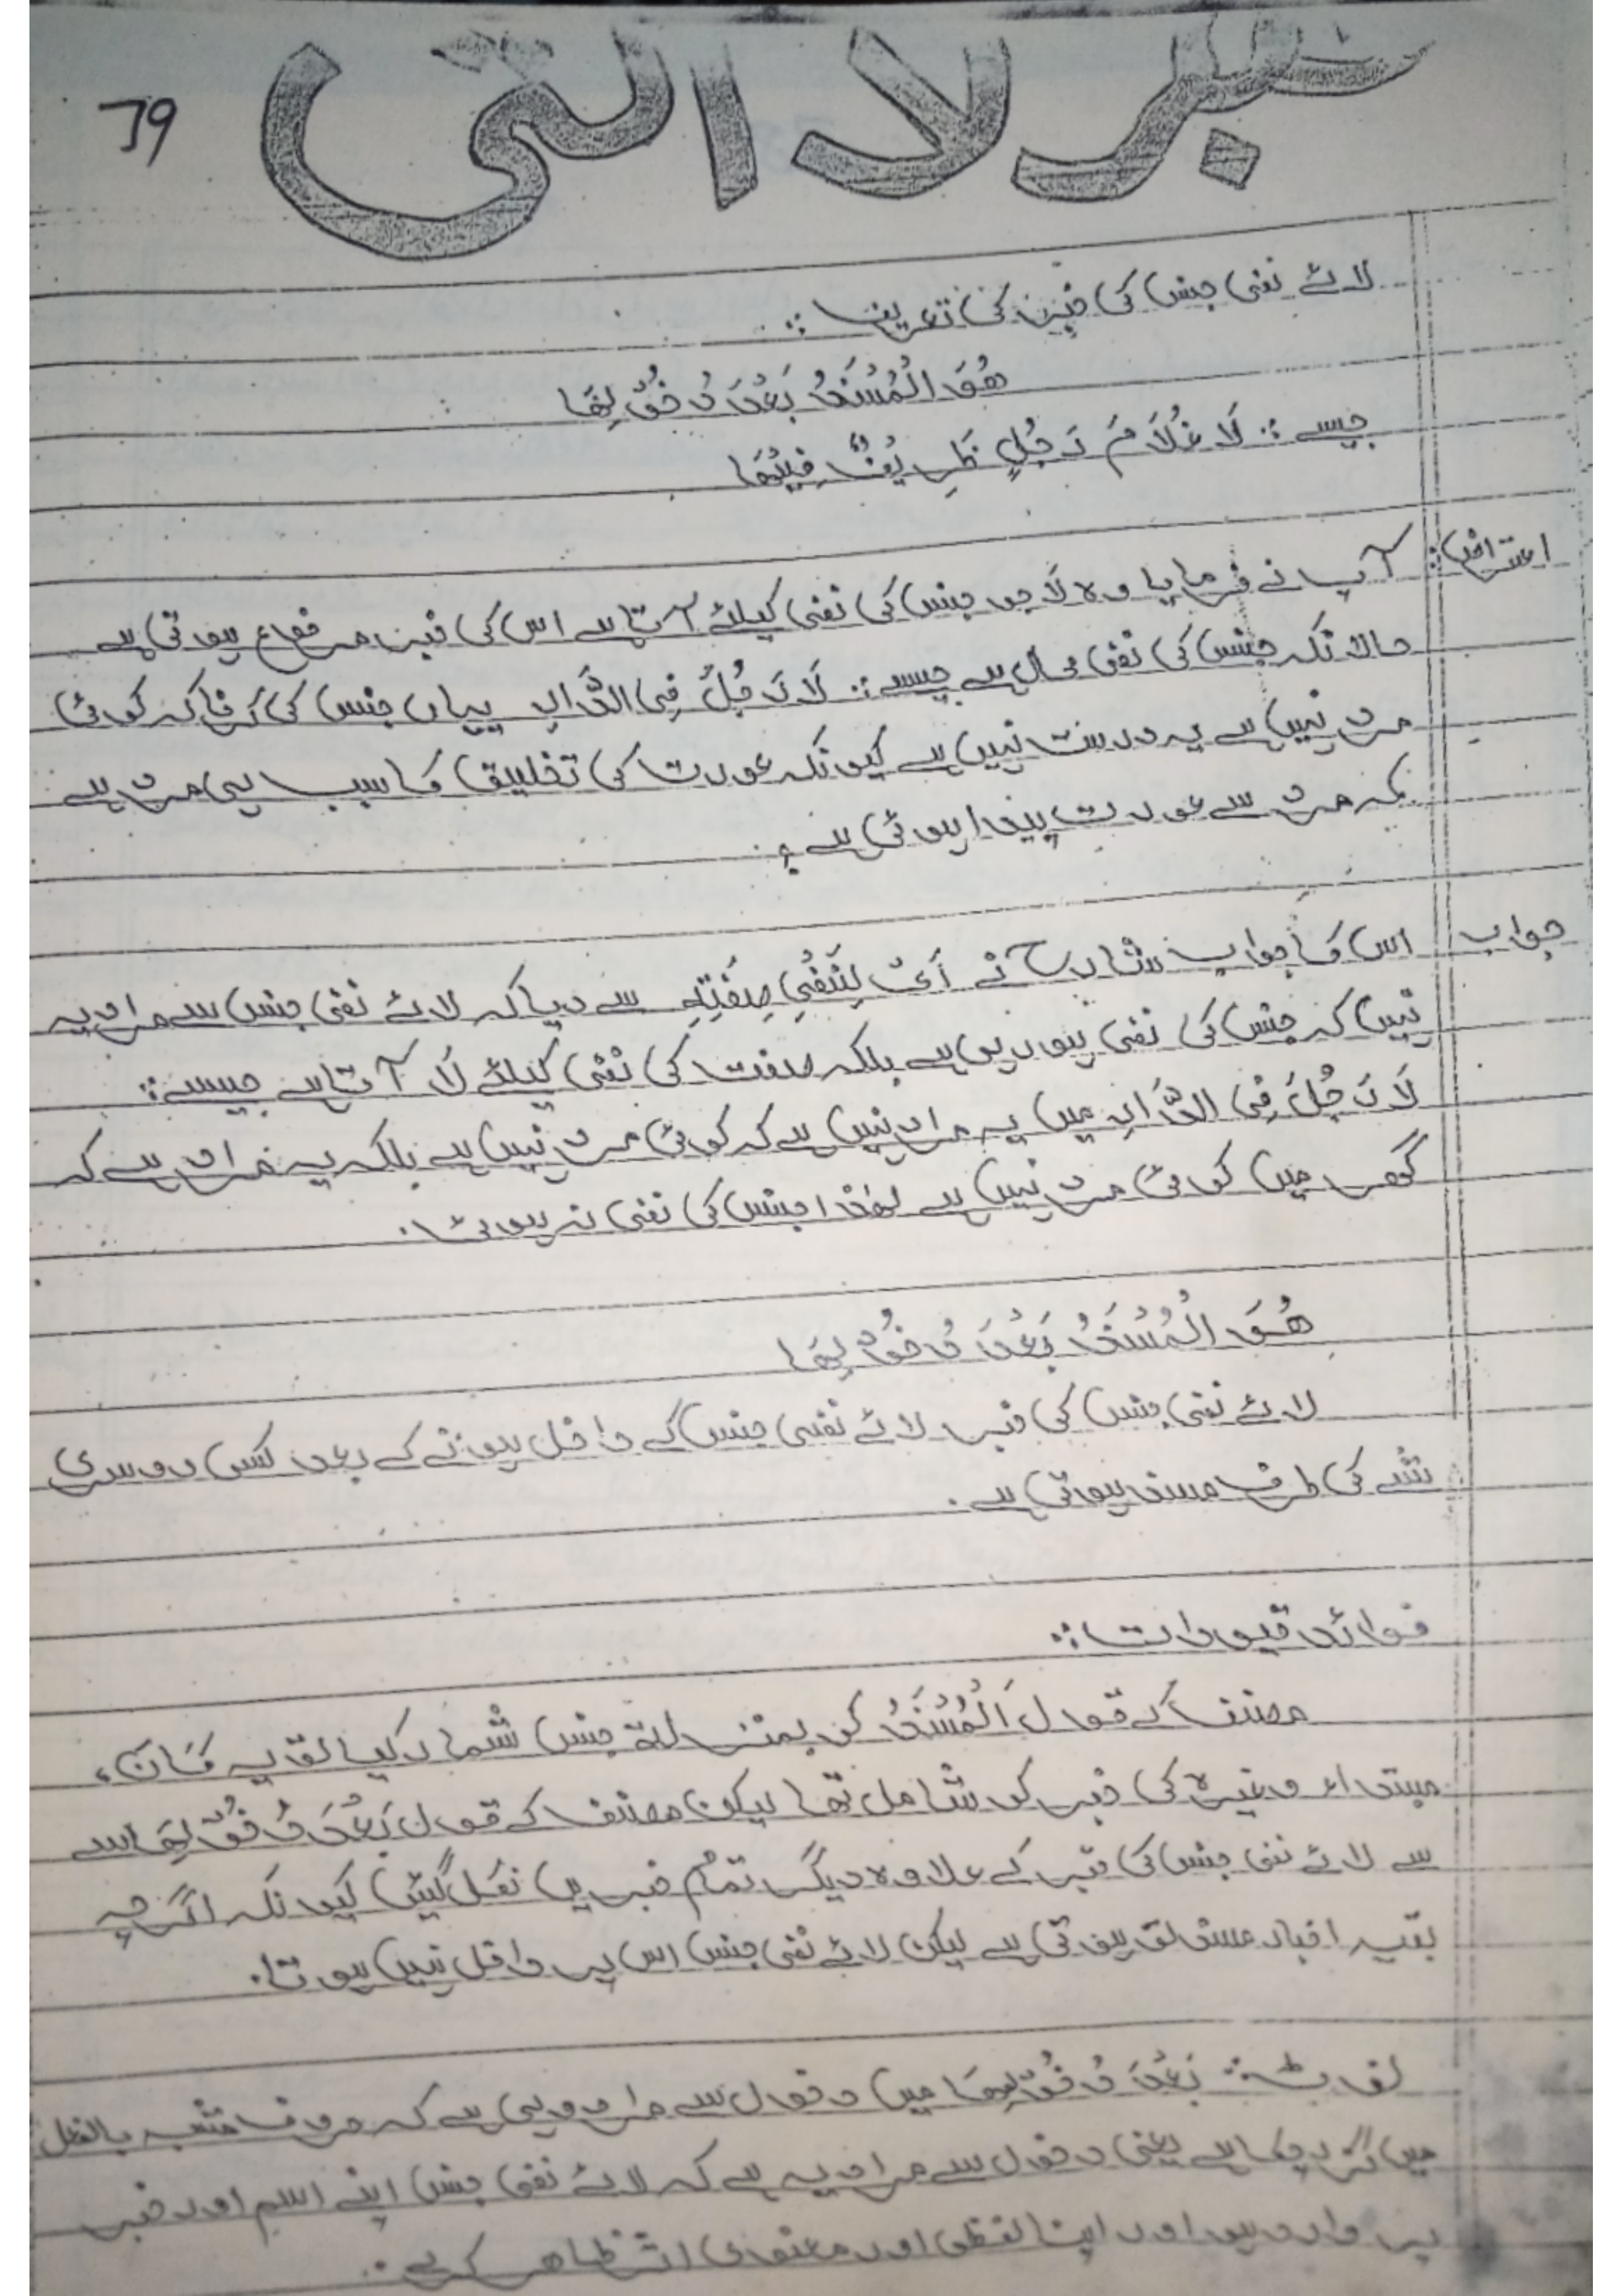 خبر لا التی
79
لائے نفی جنس کی خبر کی تعریف :
هُوَ الْمُسْنَدُ بَعْدَ دُخُوْلِهَا
جیسے : لَا غُلَامَ رَجُلٍ ظَرِیْفٌ فِیْهَا
اعتراض: آپ نے فرمایا وہ لَا جو جنس کی نفی کیلئے آتا ہے اس کی خبر مرفوع ہوتی ہے
حالانکہ جنس کی نفی محال ہے جیسے : لَا رَجُلَ فِی الدَّارِ یہاں جنس کی کہ کوئی
مرد نہیں ہے یہ درست نہیں ہے کیونکہ عورت کی تخلیق کا سبب ہی مرد ہے
کہ مرد سے عورت پیدا ہوئی ہے ؟
جواب اس کا جواب شارح نے اَیْ لِنَفْیِ صِفَتِهٖ سے دیا کہ لائے نفی جنس سے مراد یہ
نہیں کہ جنس کی نفی ہو رہی ہے بلکہ صفت کی نفی کیلئے لَا آتا ہے جیسے :
لَا رَجُلَ فِی الدَّارِ میں یہ مراد نہیں ہے کہ کوئی مرد نہیں ہے بلکہ یہ مراد ہے کہ
گھر میں کوئی مرد نہیں ہے لھٰذا جنس کی نفی نہ ہوئی.
هُوَ الْمُسْنَدُ بَعْدَ دُخُوْلِهَا
لائے نفی جنس کی خبر لائے نفی جنس کے داخل ہونے کے بعد کسی دوسری
شے کی طرف مسند ہوتی ہے.
فوائد قیودات :
مصنف کے قول اَلْمُسْنَدُ کو بمنزلۃ جنس شمار کیا تو یہ کَانَ،
مبتداء وغیرہ کی خبر کو شامل تھا لیکن مصنف کے قول بَعْدَ دُخُوْلِهَا سے
سے لائے نفی جنس کی خبر کے علاوہ دیگر تمام خبریں نکل گئیں کیونکہ اگرچہ
بقیہ اخبار مسند تو ہوتی ہے لیکن لائے نفی جنس اس پر داخل نہیں ہوتا.
نوٹ : بَعْدَ دُخُوْلِهَا میں دخول سے مراد وہی ہے کہ حروف مشبہ بالفعل
میں گزر چکا ہے یعنی دخول سے مراد یہ ہے کہ لائے نفی جنس اپنے اسم اور خبر
پر وارد ہو اور اپنا لفظی اور معنوی اثر ظاہر کرے.